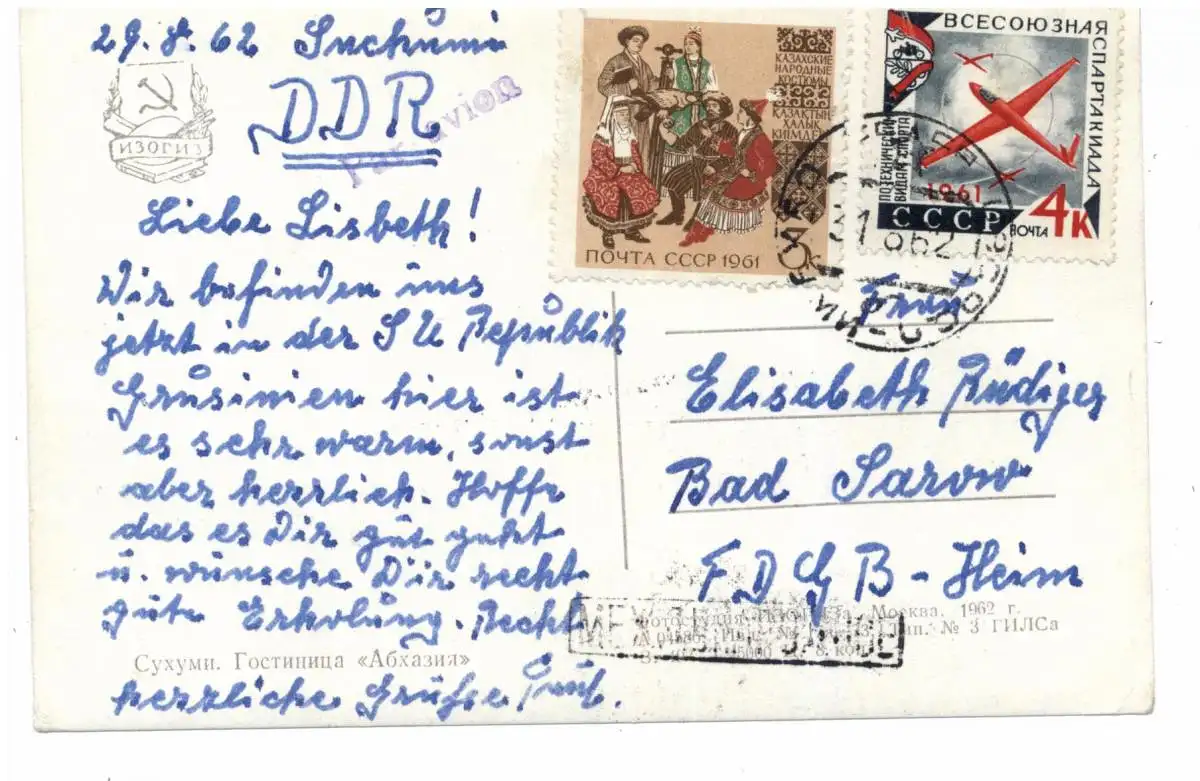 29.8.62 Suchumi
DDR
Par avion
ИЗОГИЗ
Liebe Lisbeth!
Wir befinden uns
jetzt in der SU Republik
Grusinien hier ist
es sehr warm, sonst
aber herrlich. Hoffe
das es Dir gut geht
u. wünsche Dir recht
gute Erholung. Recht
Сухуми. Гостиница «Абхазия»
herzliche Grüße
КАЗАХСКИЕ
НАРОДНЫЕ
КОСТЮМЫ
ҚАЗАҚТЫҢ
ХАЛЫҚ
КИІМДЕРІ
ПОЧТА СССР 1961
6к
ВСЕСОЮЗНАЯ
СПАРТАКИАДА
ПО ТЕХНИЧЕСКИМ
ВИДАМ СПОРТА
1961
СССР
ПОЧТА
4к
Frau
Elisabeth Rüdiger
Bad Sarow
FDGB-Heim
Москва. 1962 г.
№ 3 ГИЛСа
8. коп.